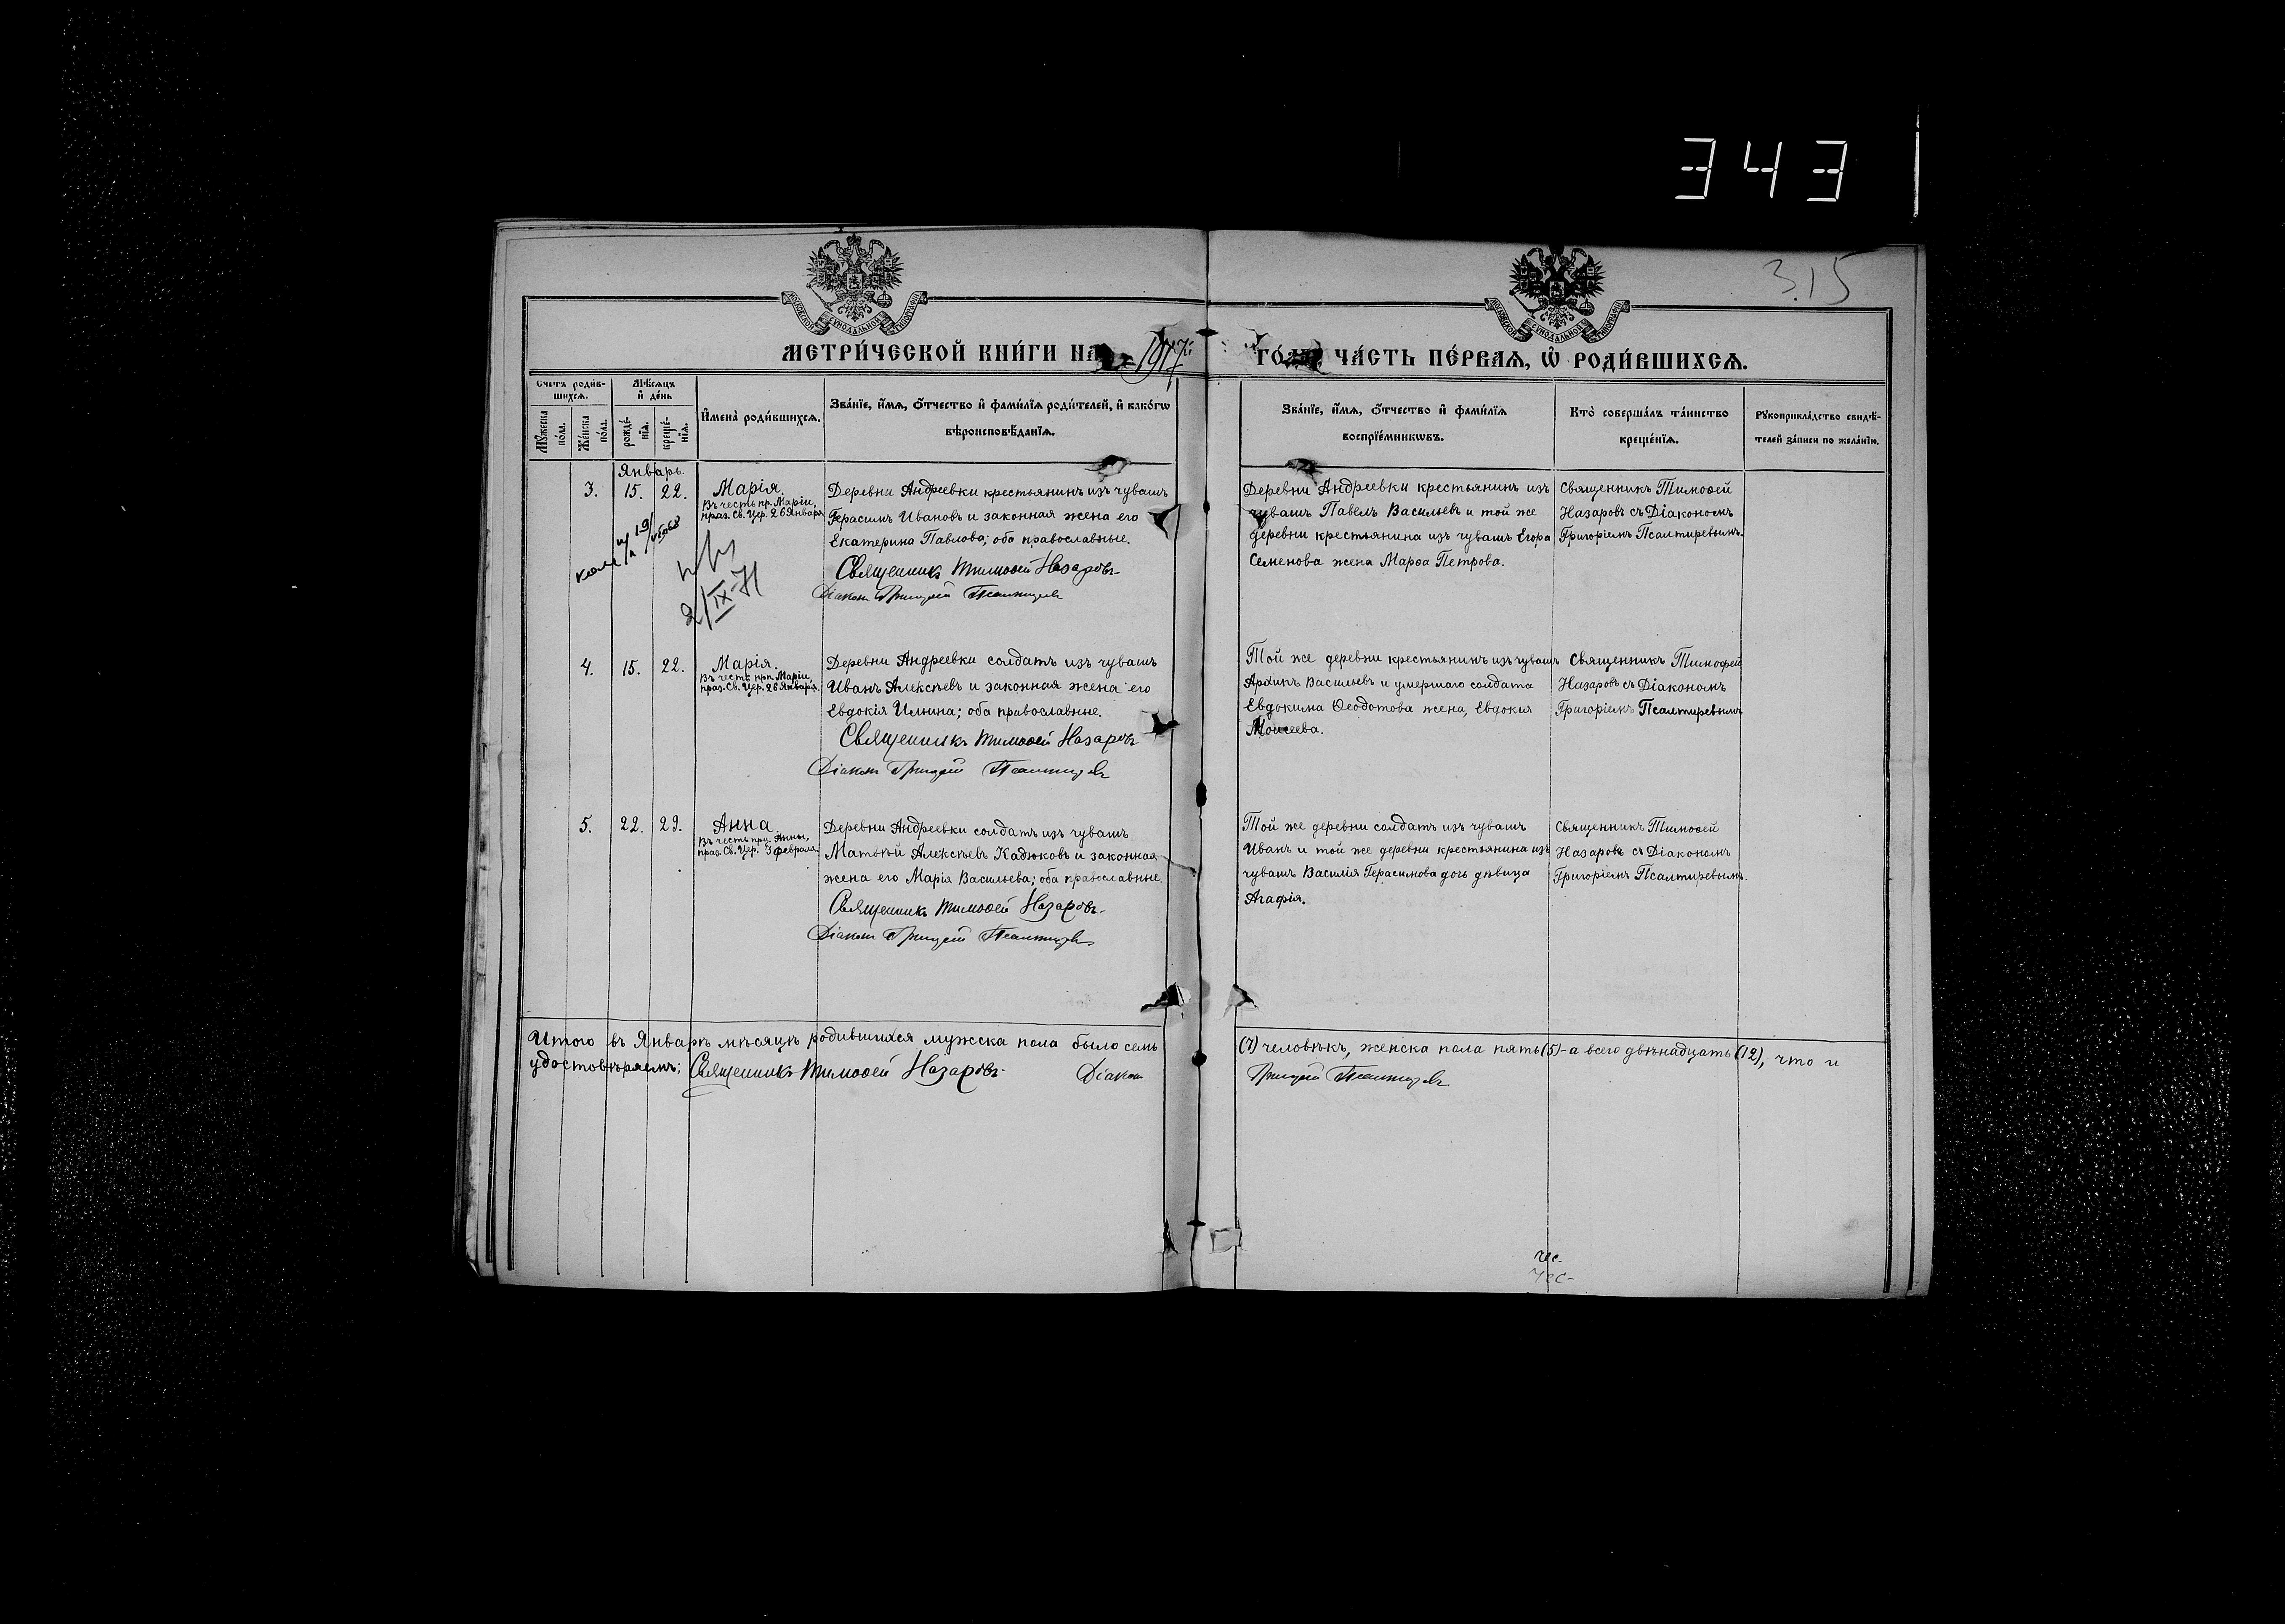 343
3.15
МОСКОВСКОЙ СѴНОДАЛЬНОЙ ТИПОГРАФІИ
МОСКОВСКОЙ СѴНОДАЛЬНОЙ ТИПОГРАФІИ
МЕТРИ́ЧЕСКОЙ КНИ́ГИ НА 1917й ГО́ДЪ, ЧА́СТЬ ПЕ́РВАѦ, Ѡ҆ РОДИ́ВШИХСѦ.
Счетъ роди́в-
шихсѧ.
Мꙋжеска по́ла.
Же́нска по́ла.
Мѣ́сѧцъ
и҆ де́нь
рожде́-
нїѧ.
креще́-
нїѧ.
И҆мена̀ роди́вшихсѧ.
Зва́нїе, и҆́мѧ, ѻ҆́тчество и҆ фами́лїѧ роди́телей, и҆ како́гѡ
вѣроисповѣ́данїѧ.
Зва́нїе, и҆́мѧ, ѻ҆́тчество и҆ фами́лїѧ
воспрїе́мникѡвъ.
Кто̀ соверша́лъ та́инство
креще́нїѧ.
Рꙋкоприкла́дство свидѣ́-
телей за́писи по жела́нїю.
Январь.
3. 15. 22. Марія.
Въ честь пр. Маріи,
праз. Св. Цер. 26 Января
2/IX-71
Деревни Андреевки крестьянинъ изъ чувашъ
Герасимъ Ивановъ и законная жена его
Екатерина Павлова; оба православные.
Священникъ Тимоѳей Назаровъ
Діаконъ Григорій Псалтыревъ
Деревни Андреевки крестьянинъ изъ
чувашъ Павелъ Васильевъ и той же
деревни крестьянина изъ чувашъ Егора
Семенова жена Марѳа Петрова.
Священникъ Тимоѳей
Назаровъ съ Діакономъ
Григоріемъ Псалтиревымъ.
4. 15. 22. Марія.
Въ честь прп. Маріи,
праз. Св. Цер. 26 Января.
Деревни Андреевки солдатъ изъ чувашъ
Иванъ Алексѣевъ и законная жена его
Евдокія Ильина; оба православные.
Священникъ Тимоѳей Назаровъ
Діаконъ Григорій Псалтыревъ
Той же деревни крестьянинъ изъ чувашъ
Архипъ Васильевъ и умершаго солдата
Евдокима Ѳеодотова жена, Евдокія
Моисеева.
Священникъ Тимофей
Назаровъ съ Діакономъ
Григоріемъ Псалтиревымъ
5. 22. 29. Анна.
Въ честь прц. Анны,
праз. Св. Цер. 3 Февраля.
Деревни Андреевки солдатъ изъ чувашъ
Матвѣй Алексѣевъ Кадюковъ и законная
жена его Марія Васильева; оба православные.
Священникъ Тимоѳей Назаровъ
Діаконъ Григорій Псалтыревъ
Той же деревни солдатъ изъ чувашъ
Иванъ и той же деревни крестьянина изъ
чувашъ Василія Герасимова дочь дѣвица
Агафія.
Священникъ Тимоѳей
Назаровъ съ Діакономъ
Григоріемъ Псалтиревымъ.
Итого въ Январѣ мѣсяцѣ родившихся мужска пола было семь (7) человѣкъ, женска пола пять (5) - а всего двѣнадцать (12), что и
удостовѣряемъ: Священникъ Тимоѳей Назаровъ Діаконъ Григорій Псалтыревъ